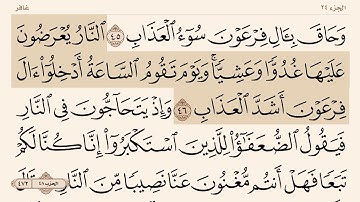 الجزء ٢٤
غافر
وَحَاقَ بِـَٔالِ فِرْعَوْنَ سُوٓءُ ٱلْعَذَابِ ٤٥ ٱلنَّارُ يُعْرَضُونَ
عَلَيْهَا غُدُوًّا وَعَشِيًّا ۖ وَيَوْمَ تَقُومُ ٱلسَّاعَةُ أَدْخِلُوٓا۟ ءَالَ
فِرْعَوْنَ أَشَدَّ ٱلْعَذَابِ ٤٦ وَإِذْ يَتَحَآجُّونَ فِى ٱلنَّارِ
فَيَقُولُ ٱلضُّعَفَـٰٓؤُا۟ لِلَّذِينَ ٱسْتَكْبَرُوٓا۟ إِنَّا كُنَّا لَكُمْ
تَبَعًا فَهَلْ أَنتُم مُّغْنُونَ عَنَّا نَصِيبًا مِّنَ ٱلنَّارِ قَالَ
٤٧٢